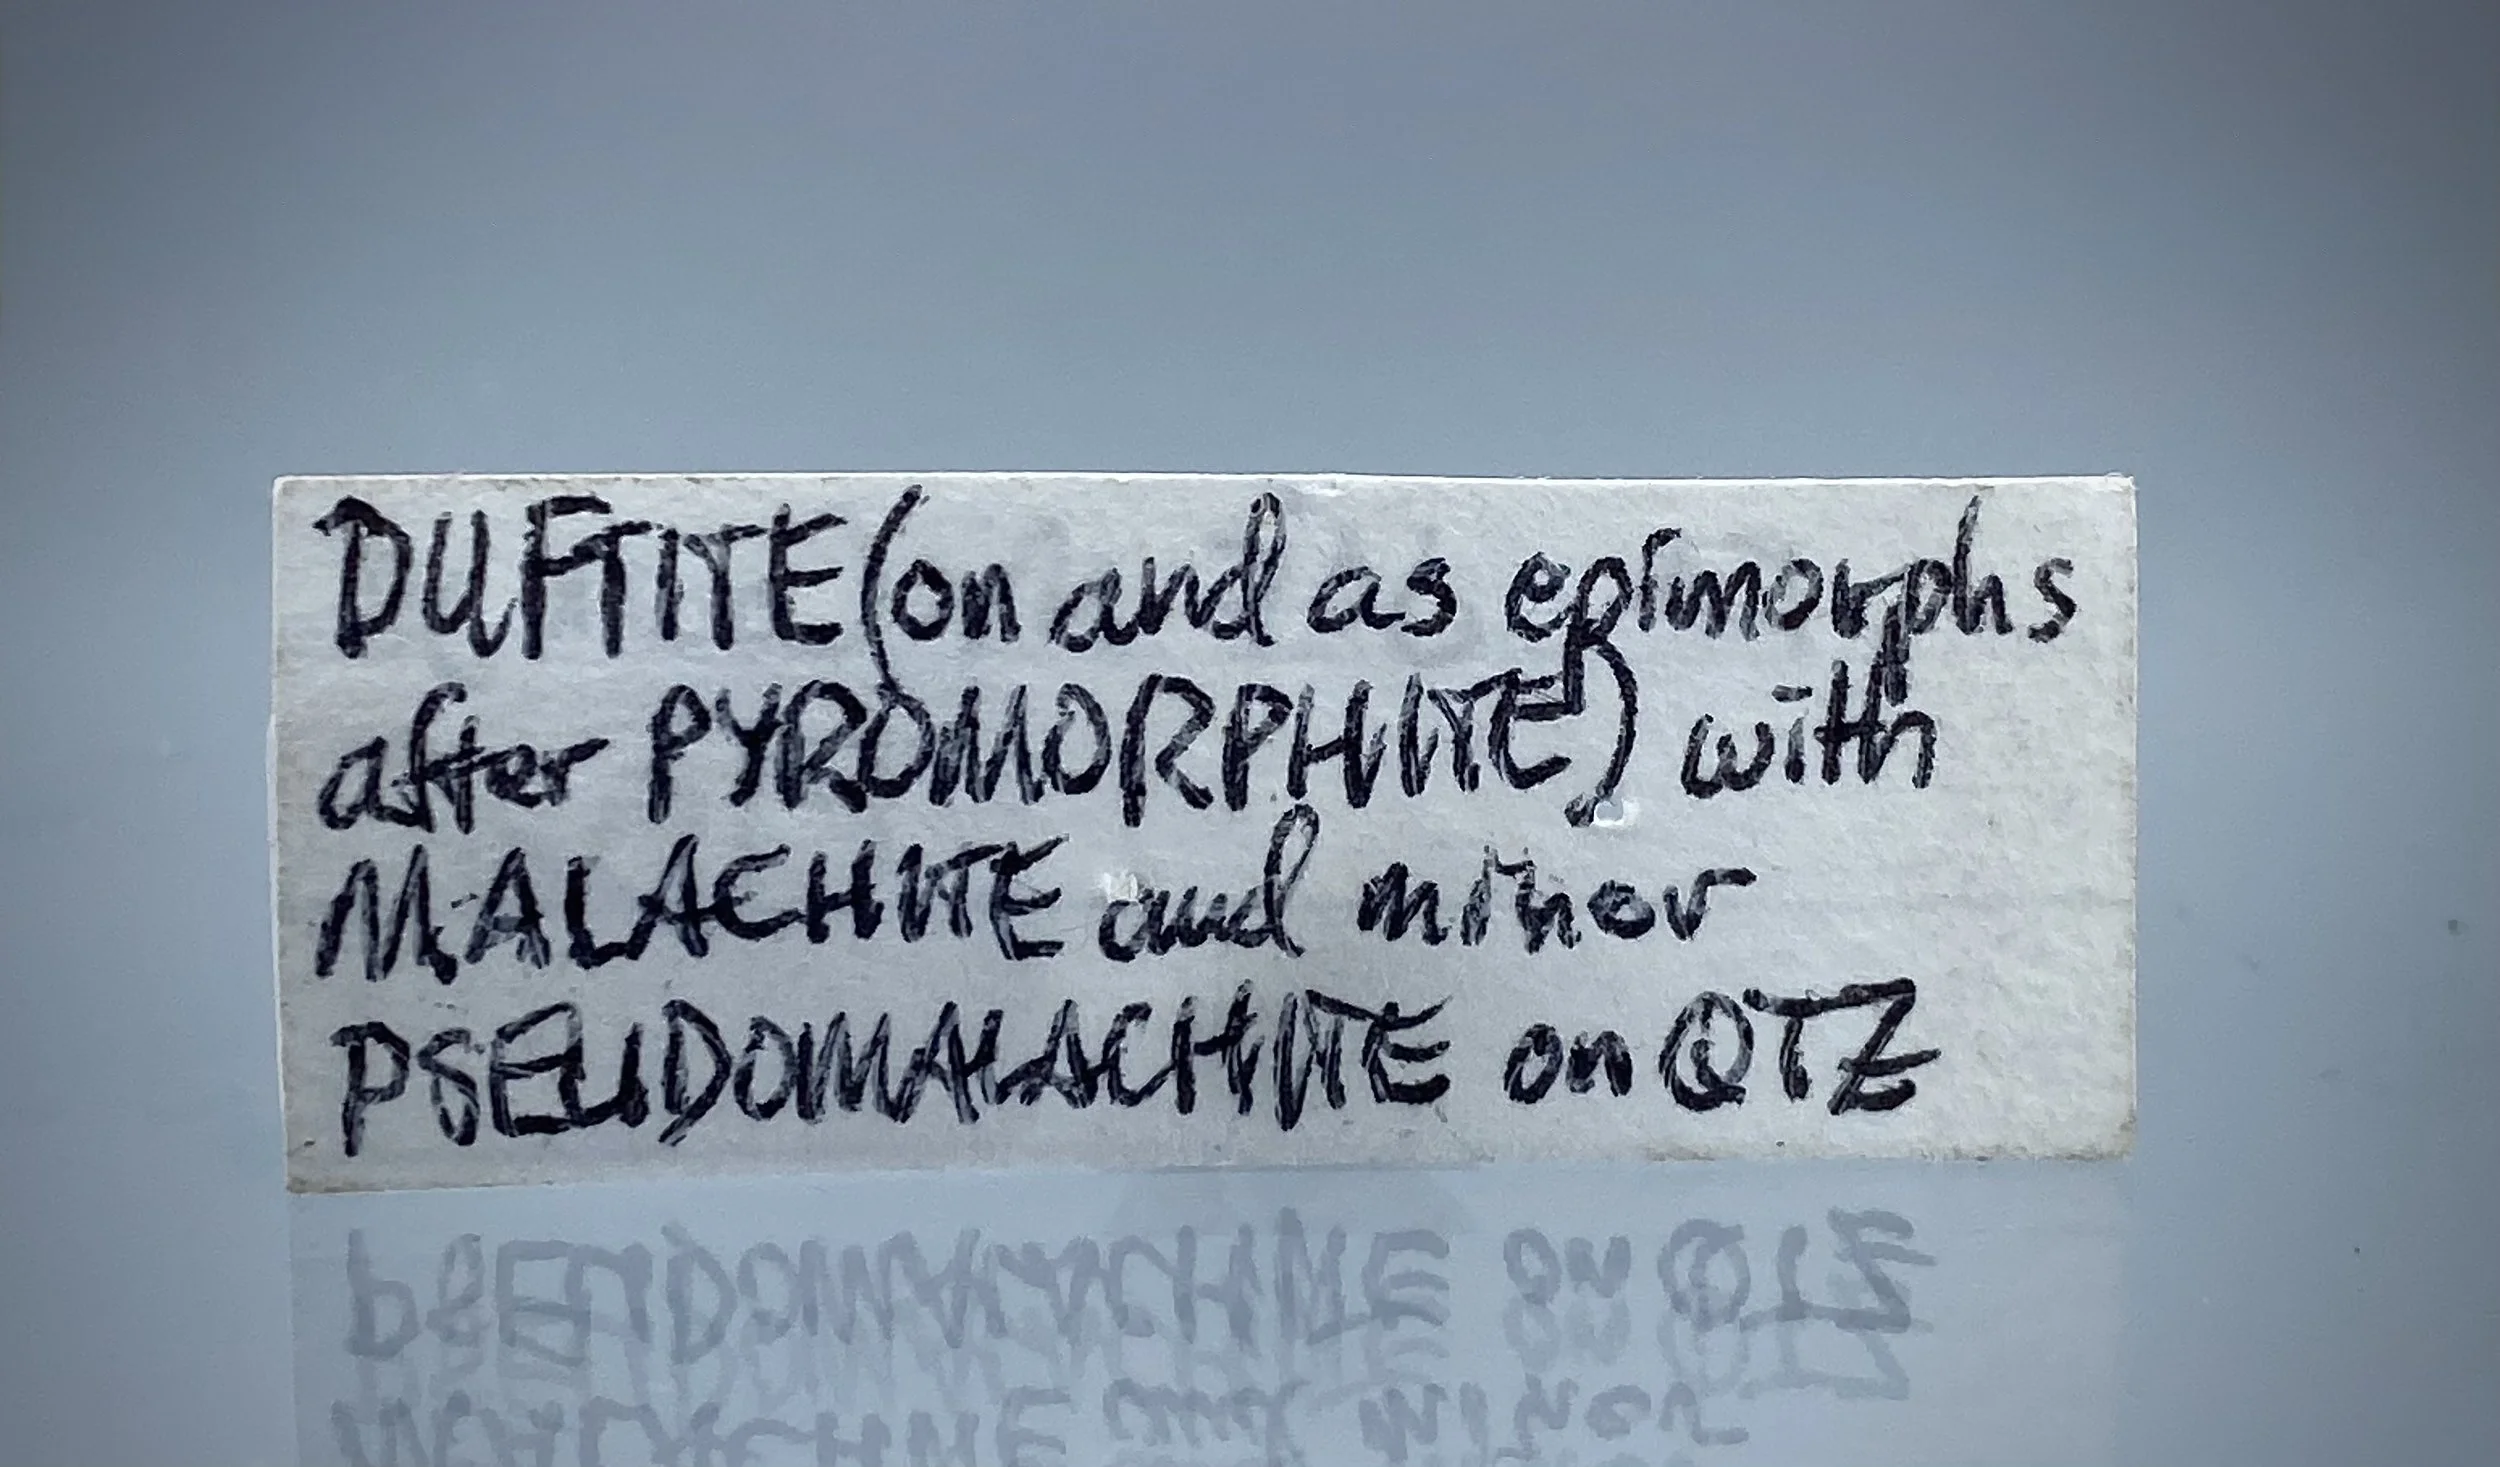 DUFTITE (on and as epimorphs
after PYROMORPHITE) with
MALACHITE and minor
PSEUDOMALACHITE on QTZ